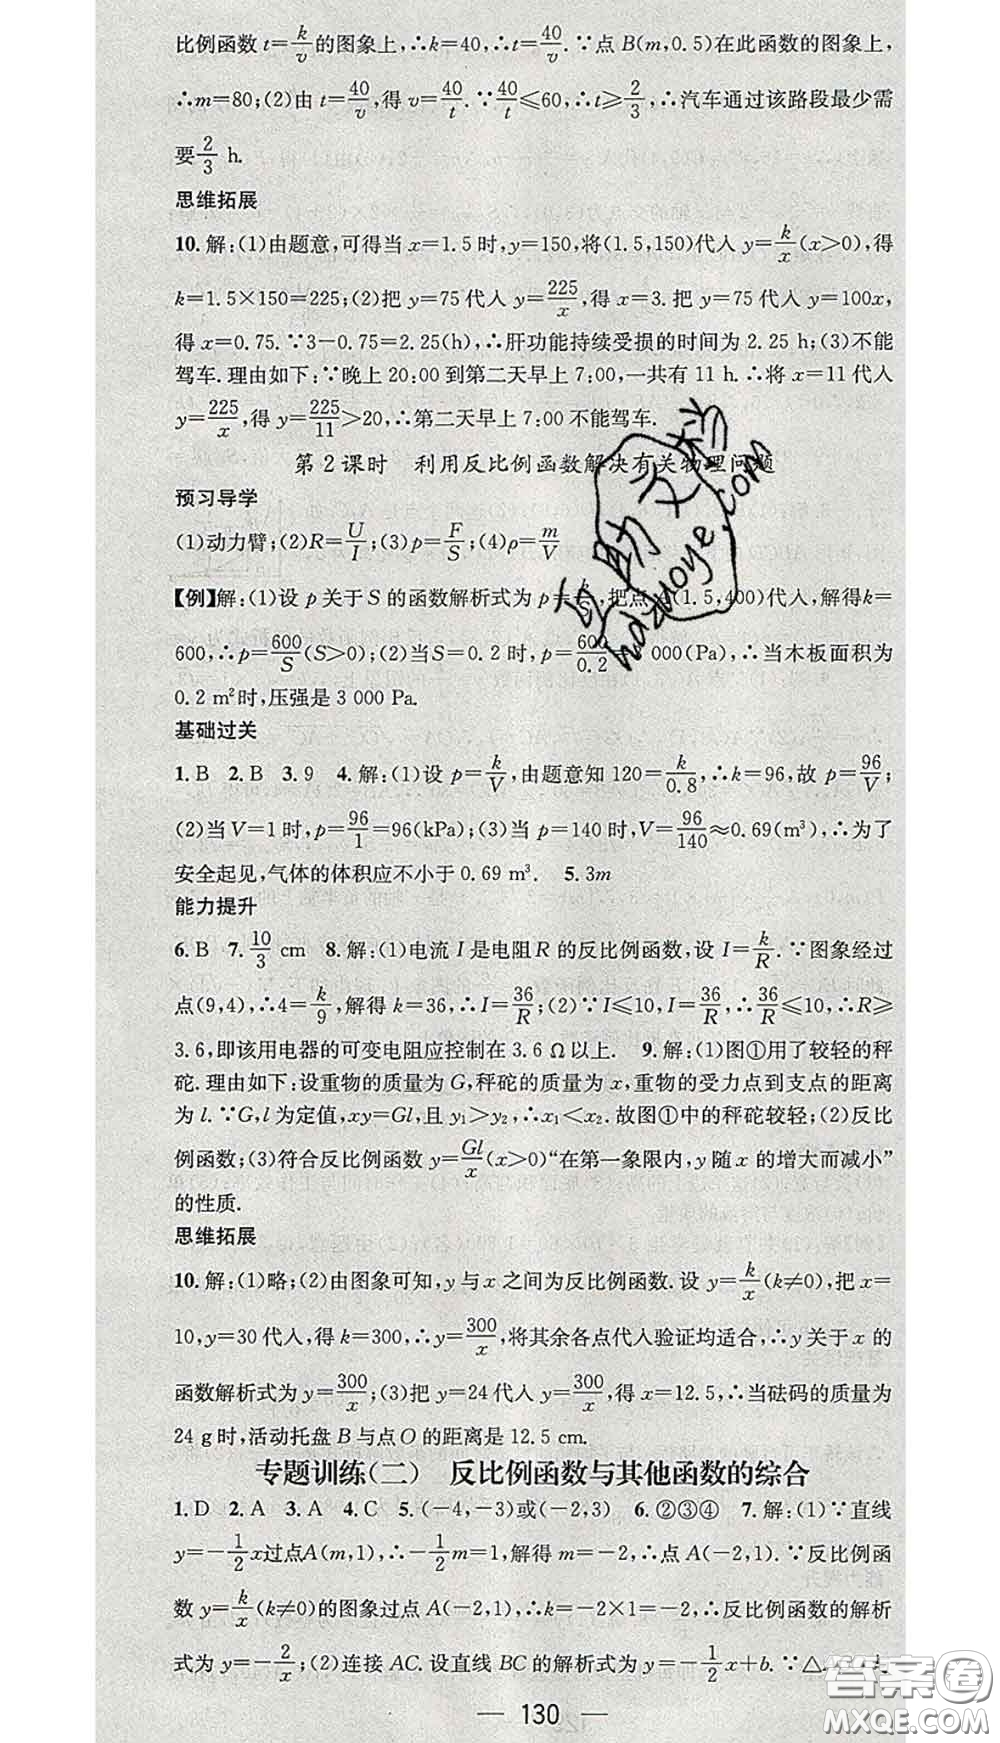 比例函数 t=k/v的图象上,∴k=40,∴t=40/v.∵点 B(m,0.5)在此函数的图象上,
∴m=80;(2)由 t=40/v,得 v=40/t.∵40/t≤60,∴t≥2/3,∴汽车通过该路段最少需
要2/3 h.
思维拓展
10.解:(1)由题意,可得当 x=1.5 时,y=150,将(1.5,150)代入 y=k/x(x>0),得
k=1.5×150=225;(2)把 y=75 代入 y=225/x,得 x=3.把 y=75 代入 y=100x,
得 x=0.75.∵3-0.75=2.25(h),∴肝功能持续受损的时间为 2.25 h;(3)不能
驾车.理由如下:∵晚上 20:00 到第二天早上 7:00,一共有 11 h.∴将 x=11 代入
y=225/x,得 y=225/11>20,∴第二天早上 7:00 不能驾车.
第 2 课时 利用反比例函数解决有关物理问题
预习导学
(1)动力臂;(2)R=U/I;(3)p=F/S;(4)ρ=m/V
【例】解:(1)设 p 关于 S 的函数解析式为 p=k/S,把点 (1.5,400)代入,解得k=
600,∴p=600/S(S>0);(2)当S=0.2 时,p=600/0.2= 000(Pa),∴当木板面积为
0.2 m²时,压强是 3 000 Pa.
基础过关
1.B 2.B 3.9 4.解:(1)设 p=k/V,由题意知 120=k/0.8,∴k=96,故 p=96/V;
(2)当 V=1 时,p=96/1=96(kPa);(3)当 p=140 时,V=96/140≈0.69(m³),∴为了
安全起见,气体的体积应不小于 0.69 m³. 5.3m
能力提升
6.B 7.10/3 cm 8.解:(1)电流 I 是电阻 R 的反比例函数,设 I=k/R.∵图象经过
点(9,4),∴4=k/9,解得 k=36,∴I=36/R;(2)∵I≤10,I=36/R,∴36/R≤10,∴R≥
3.6,即该用电器的可变电阻应控制在 3.6 Ω 以上. 9.解:(1)图①用了较轻的秤
砣.理由如下:设重物的质量为 G,秤砣的质量为 x,重物的受力点到支点的距离
为 l.∵G,l 为定值,xy=Gl,且 y₁>y₂,∴x₁<x₂.故图①中的秤砣较轻;(2)反比
例函数;(3)符合反比例函数 y=Gl/x(x>0)“在第一象限内,y 随 x 的增大而减小”
的性质.
思维拓展
10.解:(1)略;(2)由图象可知,y 与 x 之间为反比例函数.设 y=k/x(k≠0),把 x=
10,y=30 代入,得 k=300,∴y=300/x,将其余各点代入验证均适合,∴y 关于 x 的
函数解析式为 y=300/x;(3)把 y=24 代入 y=300/x,得 x=12.5,∴当砝码的质量为
24 g时,活动托盘 B 与点 O 的距离是 12.5 cm.
专题训练(二) 反比例函数与其他函数的综合
1.D 2.A 3.A 4.C 5.(-4,-3)或(-2,3) 6.②③④ 7.解:(1)∵直线
y=-1/2x过点A(m,1),∴-1/2m=1,解得 m=-2,∴点 A(-2,1).∵反比例函
数 y=k/x(k≠0)的图象过点 A(-2,1),∴k=-2×1=-2,∴反比例函数的解析
式为 y=-2/x;(2)连接 AC.设直线 BC 的解析式为 y=-1/2x+b.∵△
130
答案圈
MXQE.COM